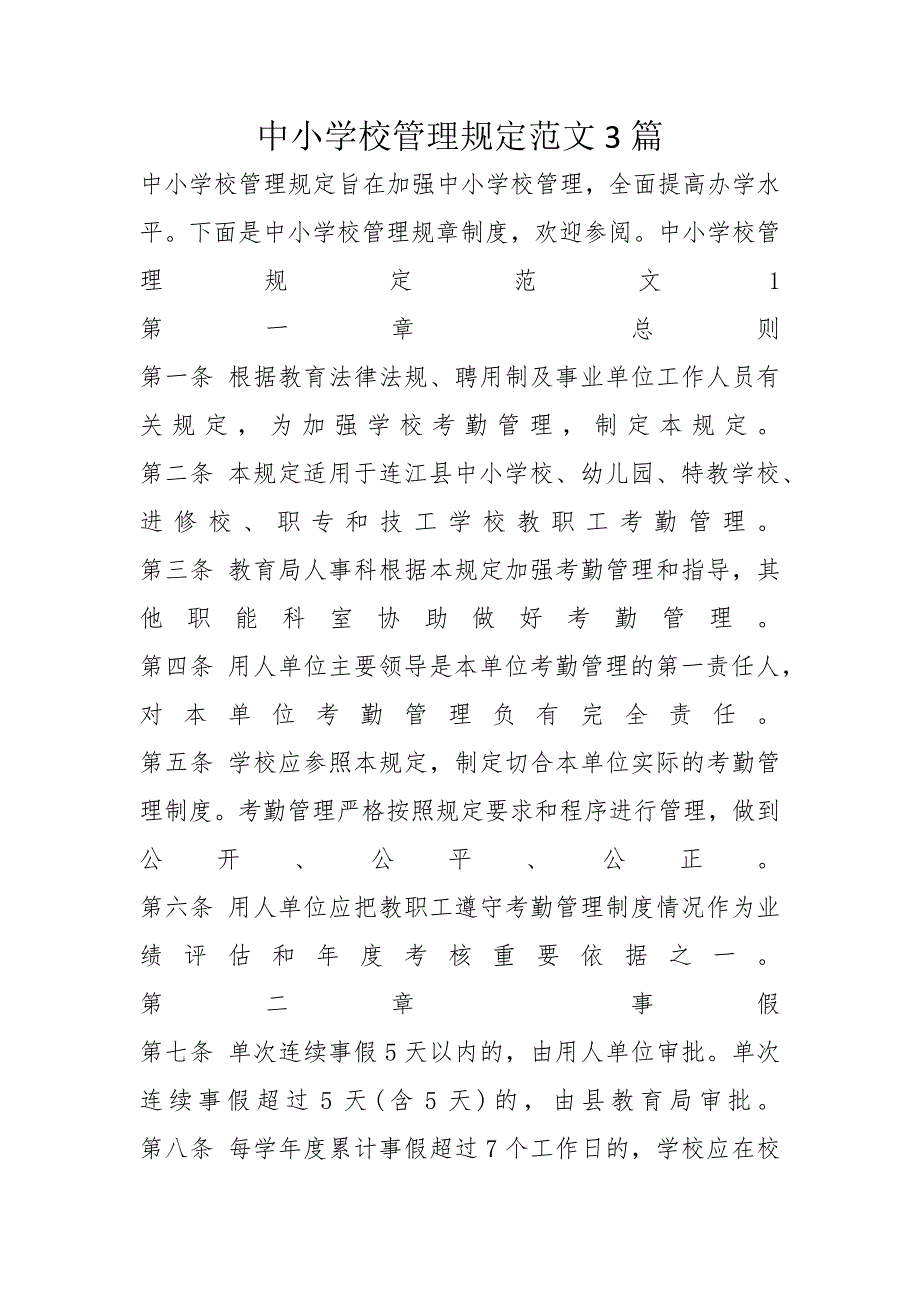 中小学校管理规定范文3篇
中小学校管理规定旨在加强中小学校管理，全面提高办学水
平。下面是中小学校管理规章制度，欢迎参阅。中小学校管
理规定范文1
第一章 总则
第一条 根据教育法律法规、聘用制及事业单位工作人员有
关规定，为加强学校考勤管理，制定本规定。
第二条 本规定适用于连江县中小学校、幼儿园、特教学校、
进修校、职专和技工学校教职工考勤管理。
第三条 教育局人事科根据本规定加强考勤管理和指导，其
他职能科室协助做好考勤管理。
第四条 用人单位主要领导是本单位考勤管理的第一责任人，
对本单位考勤管理负有完全责任。
第五条 学校应参照本规定，制定切合本单位实际的考勤管
理制度。考勤管理严格按照规定要求和程序进行管理，做到
公开、公平、公正。
第六条 用人单位应把教职工遵守考勤管理制度情况作为业
绩评估和年度考核重要依据之一。
第二章 事假
第七条 单次连续事假5天以内的，由用人单位审批。单次
连续事假超过5天(含5天)的，由县教育局审批。
第八条 每学年度累计事假超过7个工作日的，学校应在校